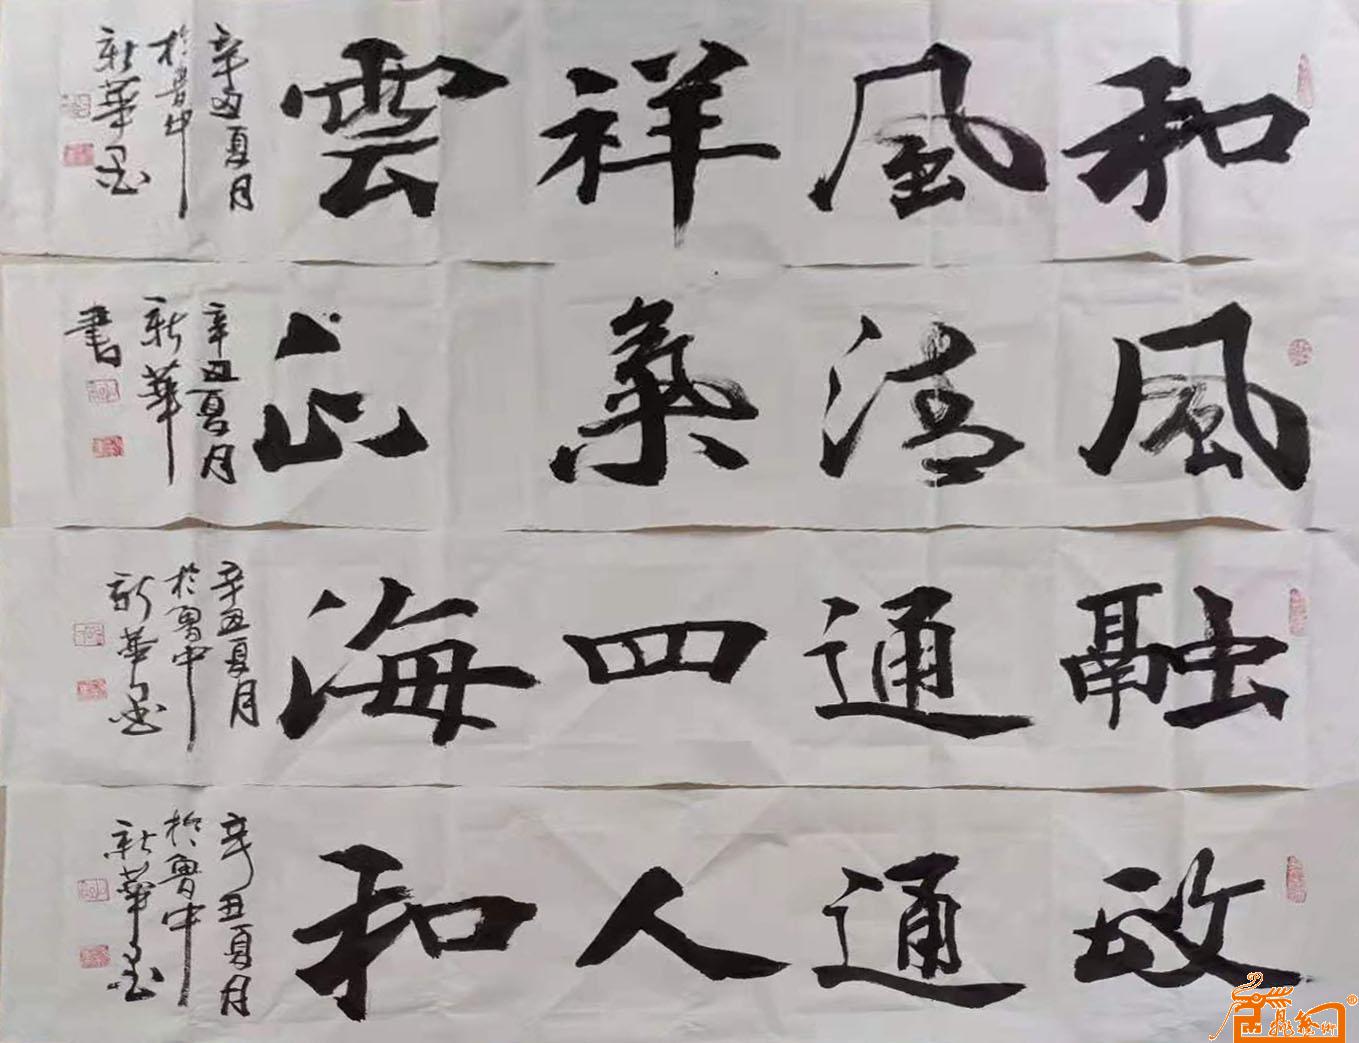 和風祥雲
辛丑夏月
於魯中
新華書
風清氣正
辛丑夏月
新華
書
融通四海
辛丑夏月
於魯中
新華書
政通人和
辛丑夏月
於魯中
新華書